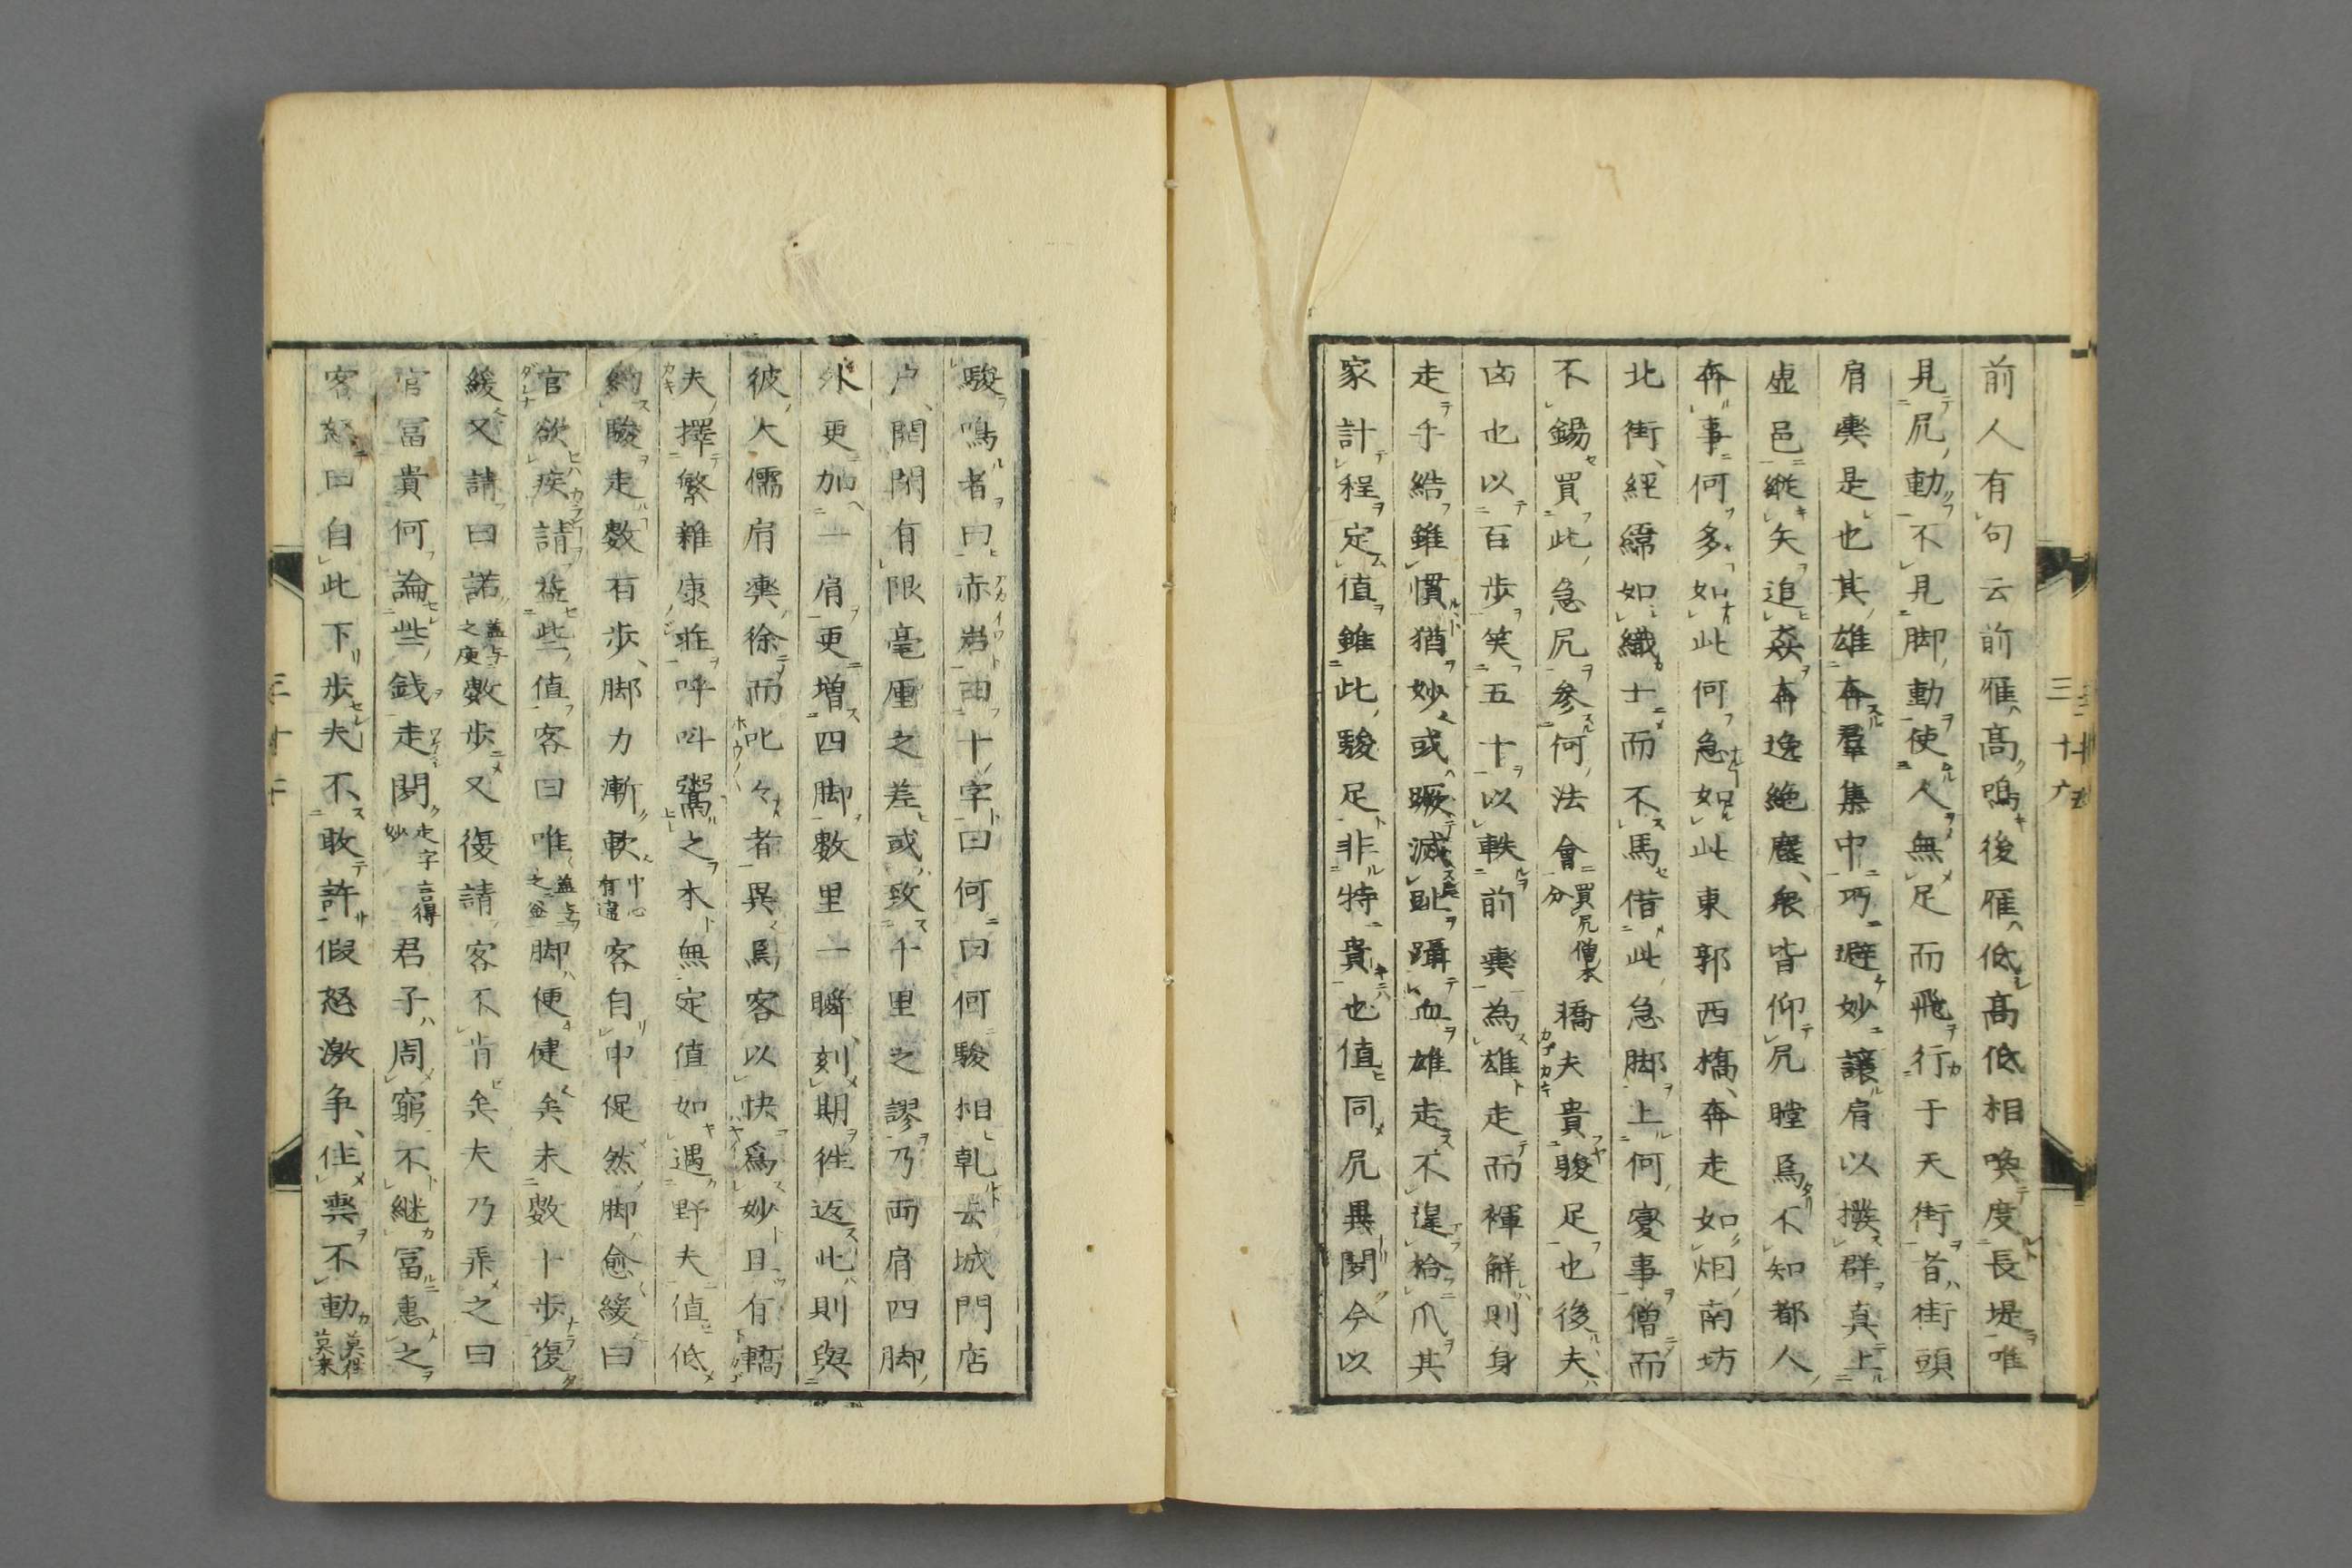 前人有句云前雁高鳴後雁低高低相喚度長堤唯
見尻動不見脚動使人無足而飛行于天街昔街頭
肩輿是也其雄奔羣集中巧避妙讓肩以撲群真上
虚邑縱矢追猋奔逸絶塵衆皆仰尻瞠焉不知都人
奔事何多如此何急如此東郭西橋奔走如烟南坊
北街經緯如織士而不馬借此急脚上何変事僧而
不錫買此急尻参何法會買尻僧本分轎夫貴駿足也後夫
凶也以百歩笑五十以軼前輿為雄走而褌解則身
走手結雖慣猶妙或蹶滅趾躡血雄走不遑拾爪其
家計程定值雖此駿足非特貴也值同尻異閲今以
駿鳴者曰赤岩曰十字曰何曰何駿相軋去城門店
户開閉有限毫厘之差或致千里之謬乃両肩四脚
外更加一肩更増四脚數里一瞬刻期徃返此則與
彼大儒肩輿徐而叱々者異焉客以快為妙且有轎
夫擇繁雜康莊呼叫鬻之木無定值如遇野夫值低
約駿走數百歩脚力漸軟中心有違客自中促然脚愈緩曰
官欲疾請益些值客曰唯唯盖与之釜脚便健矣未數十歩復
緩又請曰諾盖与之庾數歩又復請客不肯矣夫乃乗之曰
官冨貴何論些錢走閲走字言得妙君子周窮不継冨惠之
客怒曰自此下歩夫不敢許假怒激争住輿不動莫徃莫来
三十六